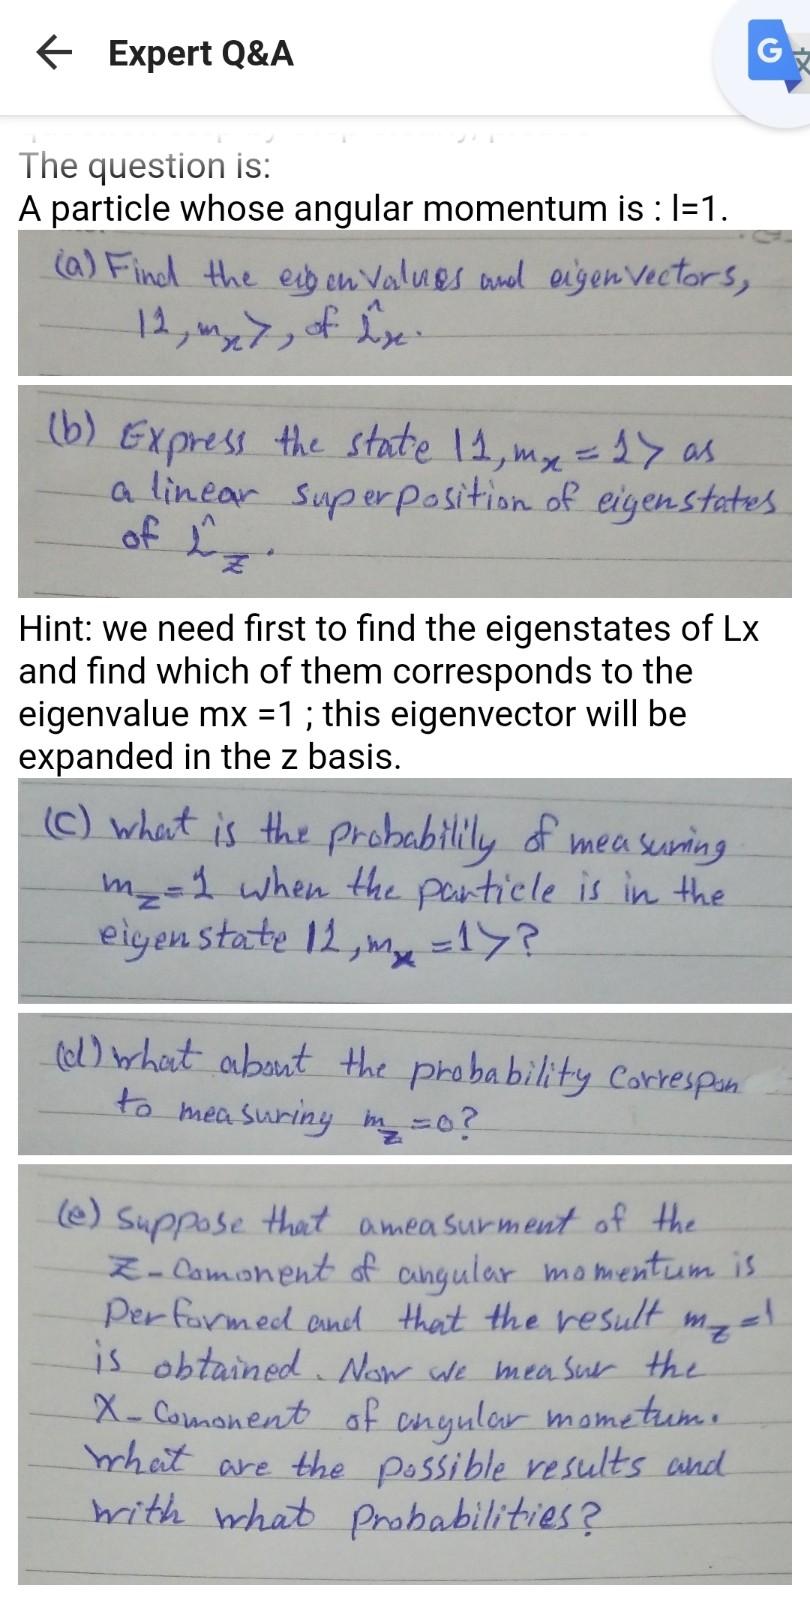 Expert Q&A
G
The question is:
A particle whose angular momentum is : l=1.
(a) Find the eigenvalues and eigenvectors,
|1,mx>, of L̂x.
(b) Express the state |1,mx = 1> as
a linear superposition of eigenstates
of L̂z.
Hint: we need first to find the eigenstates of Lx
and find which of them corresponds to the
eigenvalue mx =1 ; this eigenvector will be
expanded in the z basis.
(c) what is the probabilily of measuring
mz=1 when the particle is in the
eigenstate |1,mx =1>?
(d) what about the probability Correspon
to measuring mz=0?
(e) Suppose that ameasurment of the
Z-Comonent of angular momentum is
Performed and that the result mz=1
is obtained. Now we measur the
X-Comonent of angular mometum.
what are the possible results and
with what Probabilities?